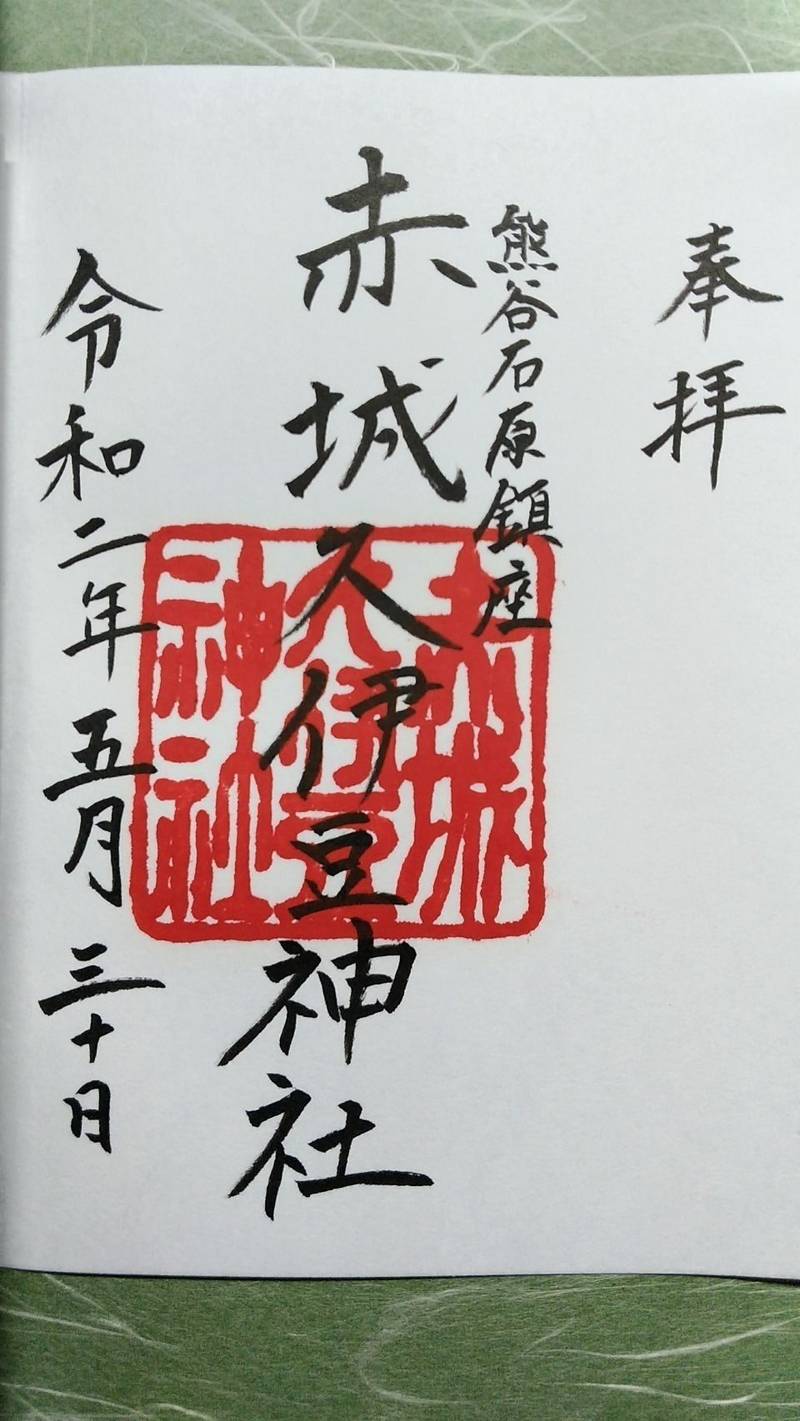 奉拝
熊谷石原鎮座
赤城久伊豆神社
令和二年五月三十日
赤城
久伊豆
神社